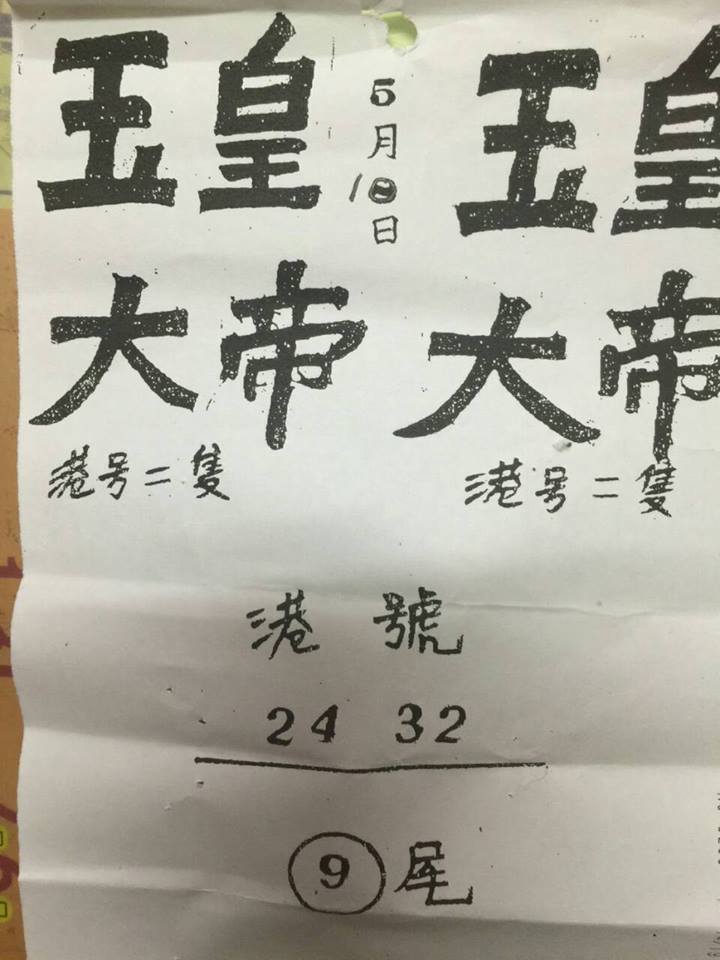 玉皇
大帝
5月18日
港号二隻
玉皇
大帝
港号二隻
港號
24 32
9尾